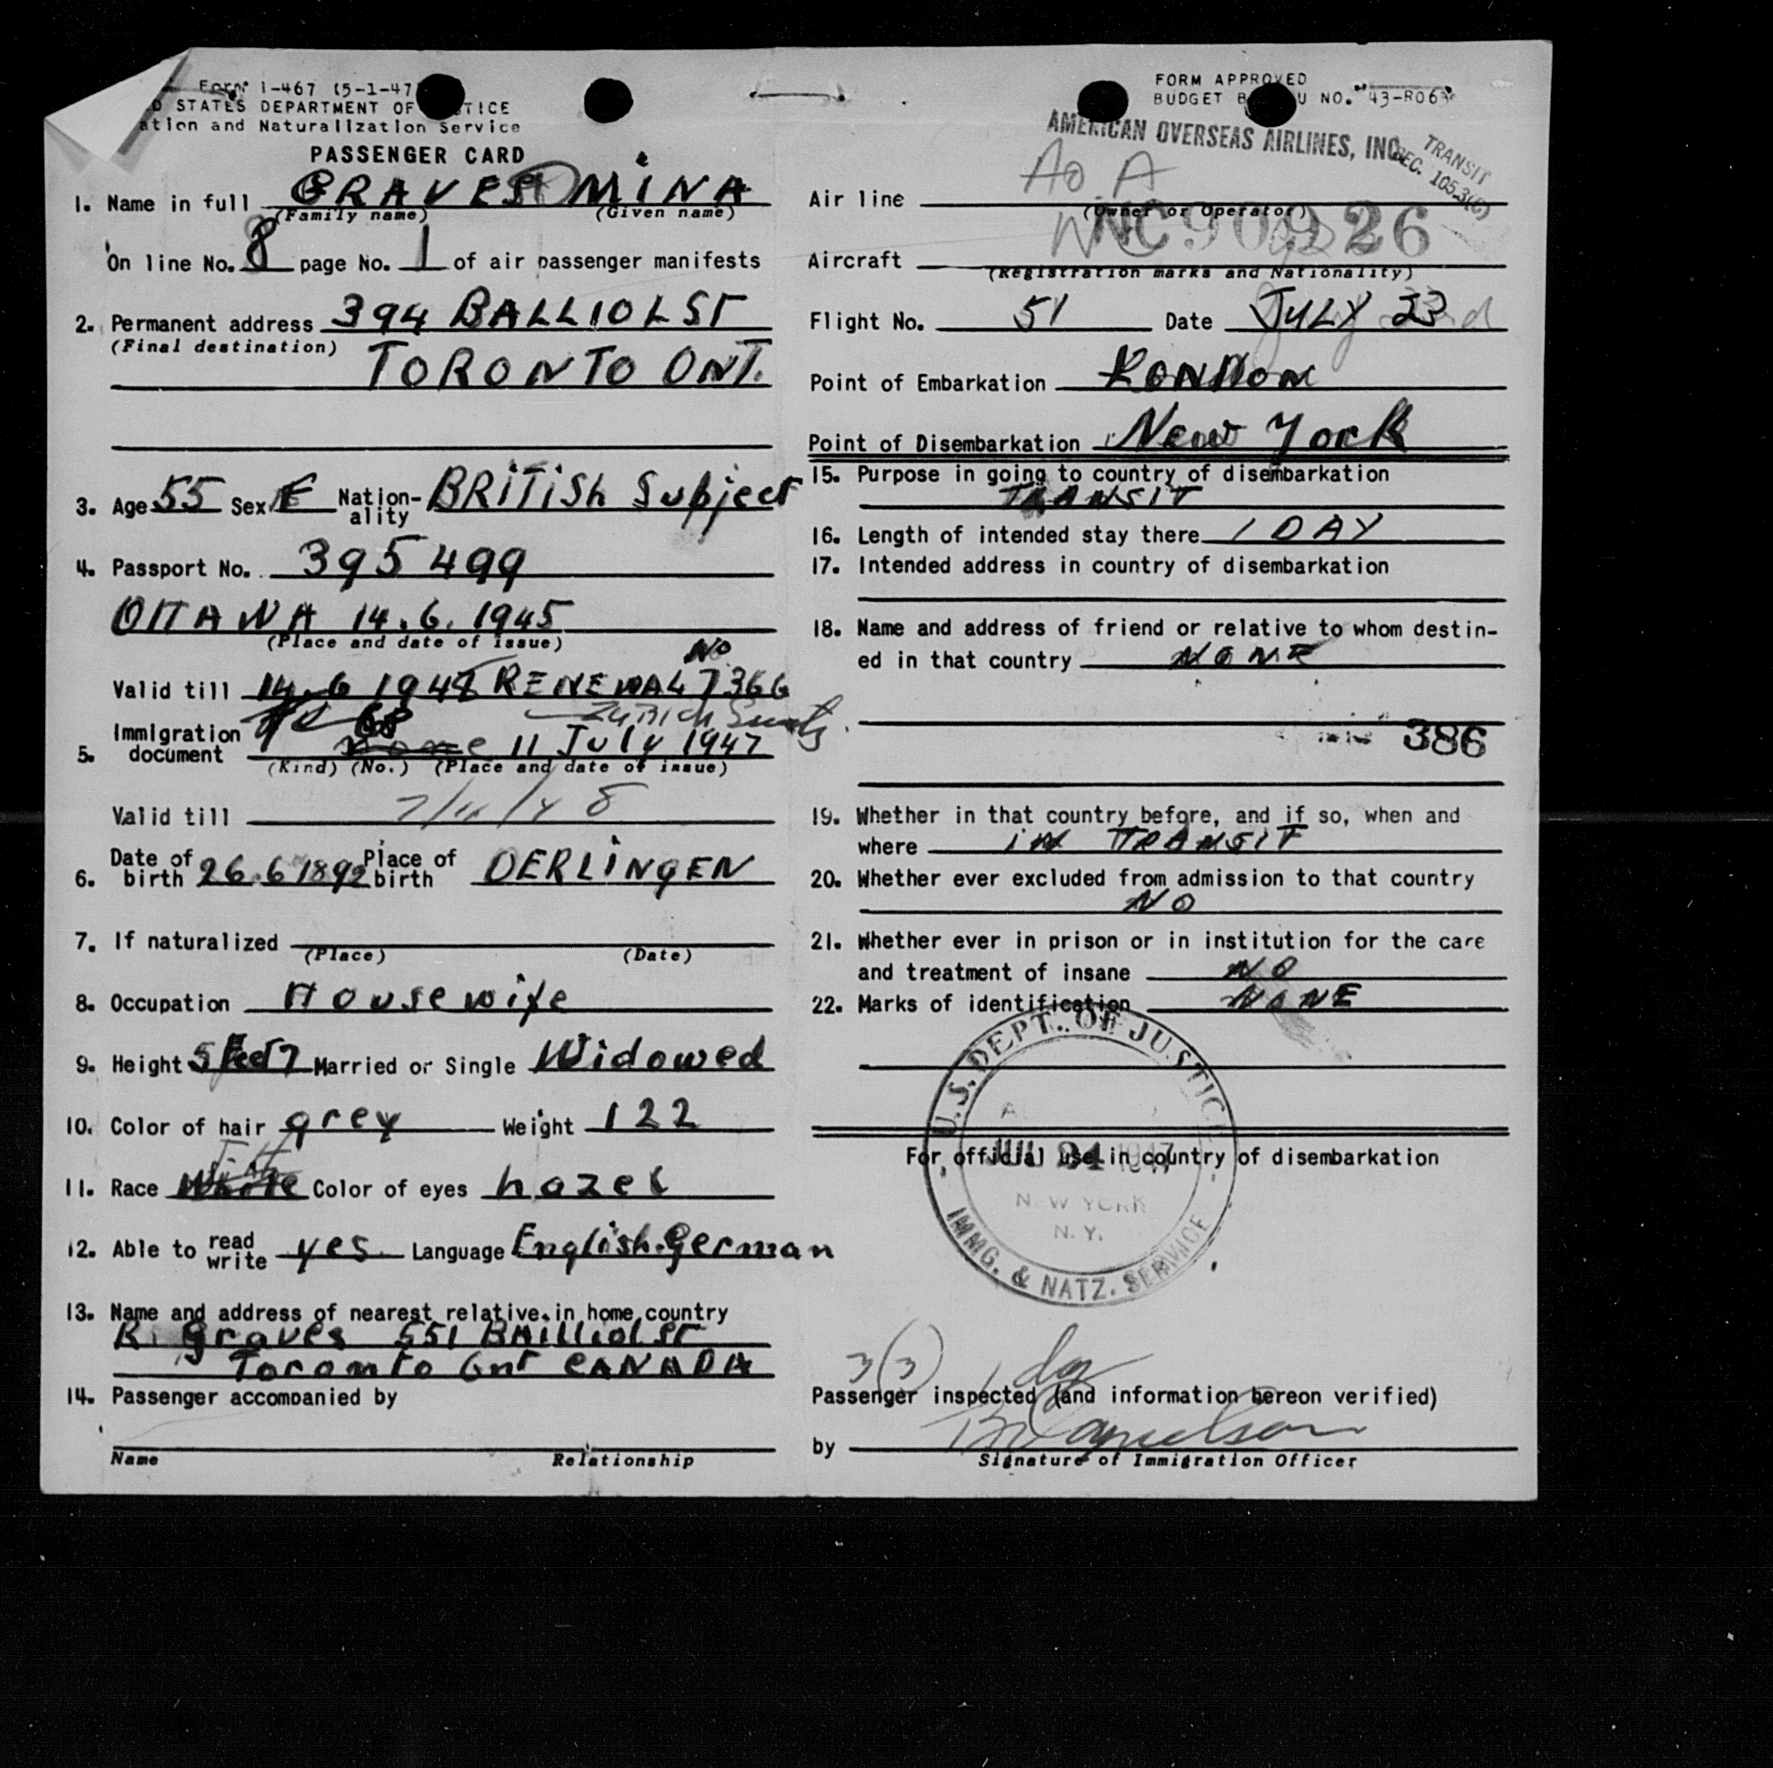 Form I-467 (5-1-47
D STATES DEPARTMENT OF TICE
ation and Naturalization Service
PASSENGER CARD
1. Name in full GRAVES MINA
(Family name) (Given name)
On line No. 8 page No. 1 of air passenger manifests
2. Permanent address 394 BALLIOL ST
(Final destination) TORONTO ONT.
3. Age 55 Sex F Nation-ality BRITISH Subject
4. Passport No. 395499
OTTAWA 14.6.1945
(Place and date of issue)
No
Valid till 14-6 1948 RENEWAL 7366
Zurich
5. Immigration document 11 July 1947
(Kind) (No.) (Place and date of issue)
Valid till 7/11/48
6. Date of birth 26.6 1892 Place of birth OERLINGEN
7. If naturalized
(Place) (Date)
8. Occupation Housewife
9. Height 5 Feet 7 Married or Single Widowed
10. Color of hair grey Weight 122
11. Race White Color of eyes hazel
12. Able to read write yes Language English-German
13. Name and address of nearest relative in home country
R. Graves 551 BAilliol ST
Toronto Ont CANADA
14. Passenger accompanied by
Name Relationship
FORM APPROVED
BUDGET B U NO. 43-R063
AMERICAN OVERSEAS AIRLINES, INC.
TRANSIT
SEC. 105.3(6)
Air line AOA
(Owner or Operator)
Aircraft NC90926
(Registration marks and Nationality)
Flight No. 51 Date JULY 23
Point of Embarkation LONDON
Point of Disembarkation New York
15. Purpose in going to country of disembarkation
TRANSIT
16. Length of intended stay there 1 DAY
17. Intended address in country of disembarkation
18. Name and address of friend or relative to whom destin-
ed in that country NONE
386
19. Whether in that country before, and if so, when and
where IN TRANSIT
20. Whether ever excluded from admission to that country
NO
21. Whether ever in prison or in institution for the care
and treatment of insane NO
22. Marks of identification NONE
U.S. DEPT. OF JUSTICE
JUL 24 1947
For official use in country of disembarkation
NEW YORK
N.Y.
IMMG. & NATZ. SERVICE
3(3)
Passenger inspected (and information hereon verified)
by
Signature of Immigration Officer